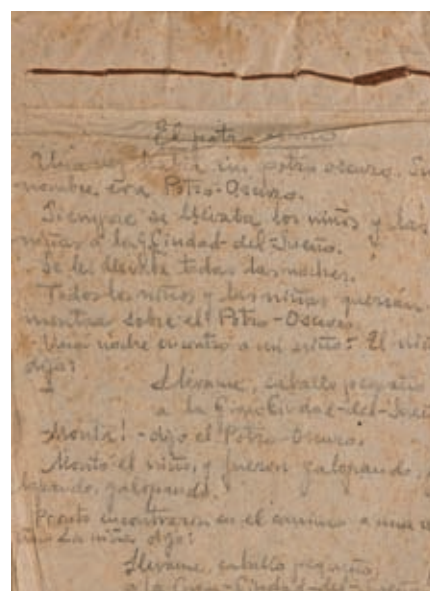 El potro oscuro
Una vez había un potro oscuro. Su
nombre era Potro-Oscuro.
Siempre se llevaba los niños y las
niñas a la Gran Ciudad-del-Sueño.
Se los llevaba todas las noches.
Todos los niños y las niñas querían
montar sobre el Potro-Oscuro.
Una noche encontró a un niño. El niño
dijo:
Llévame, caballo pequeño
a la Gran Ciudad-del-Sueño
-Monta! -dijo el Potro-Oscuro.
Montó el niño, y fueron galopando,
galopando.
Pronto encontraron en el camino a una
niña. La niña dijo:
Llévame, caballo pequeño,
a la Gran-Ciudad-del-Sueño